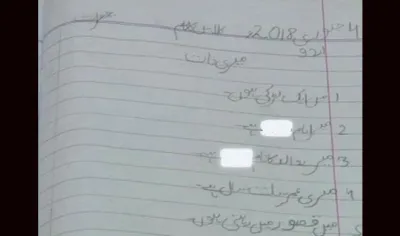 4 جنوری 2018ء کلاس کا کام جمعرات
اردو
میری ذات
1 میں ایک لڑکی ہوں۔
2 میرا نام ہے۔
3 میرے والد کا نام ہے۔
4 میری عمر سات سال ہے۔
میں قصور میں رہتی ہوں۔